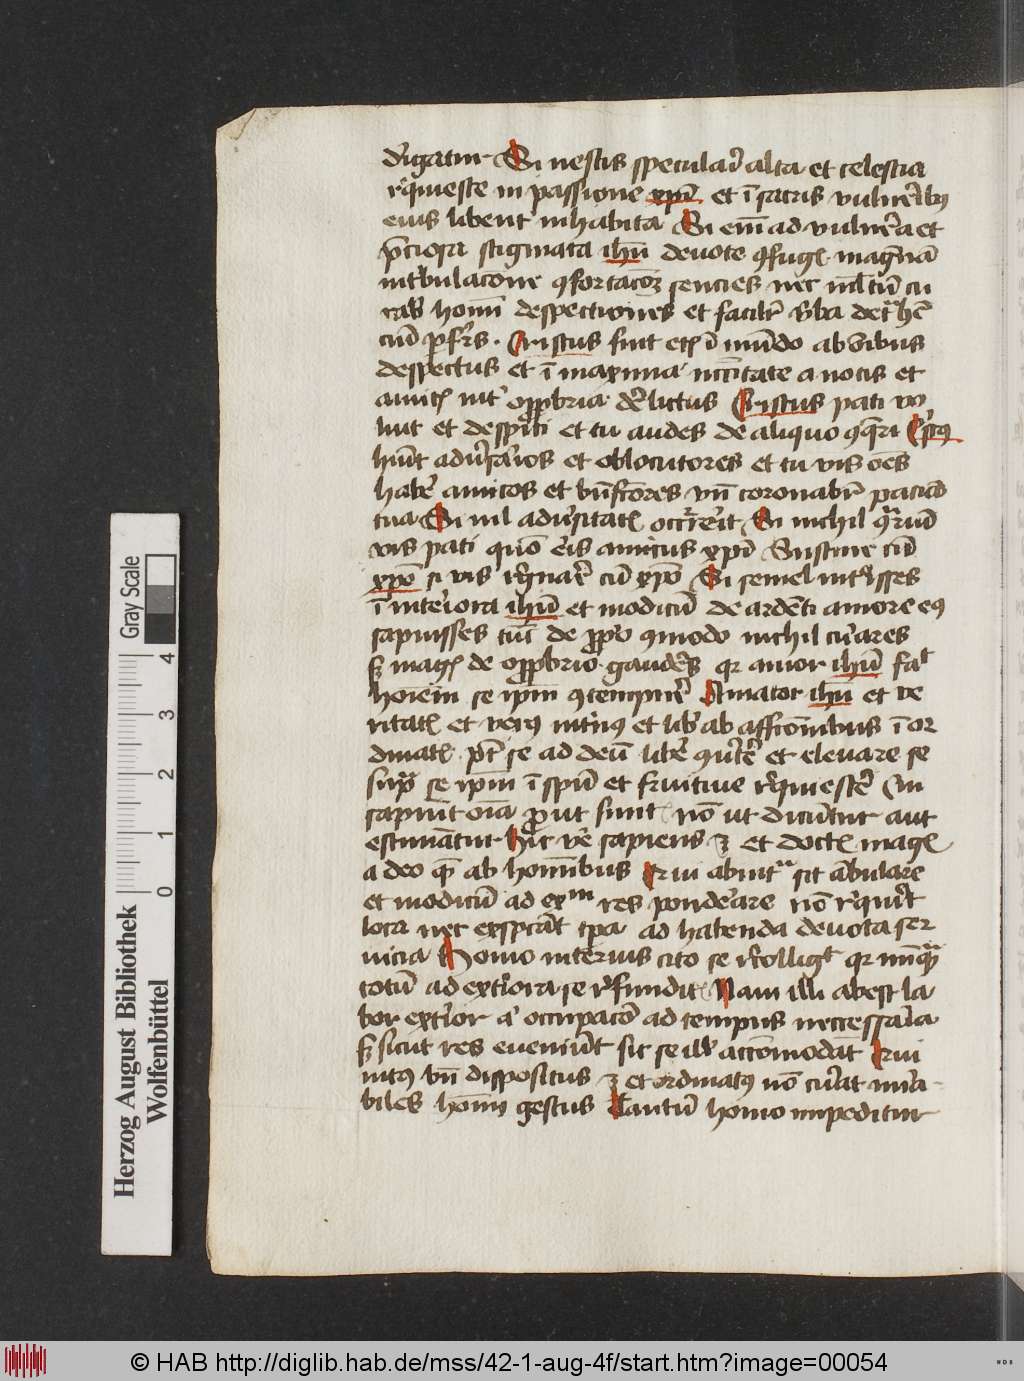 dirigatur Si nescis speculari alta et celestia
requiesce in passione xpi et ī sacris vulneribus
eius libenter inhabita Si enī ad vulnera et
preciosa stigmata ihu devote ꝯfugis magnā
in tribulacone ꝯfortacōem sencies nec multū cu
rabis homī despectiones et faciliter verba detrahē
ciū perferes . Cristus fuit etiā ī mūdo ab hominibus
despectus et ī maxima necessitate a notis et
amicis inter opprobria derelictus Cristus pati vo
luit et despici et tu audes de aliquo ꝯqueri Cristus
habuit adversarios et oblocutores et tu vis oēs
habere amicos et bnfcōres vn coronabitur paciēcia
tua Si nil adversitatis occurrerit Si nichil ꝯtrariū
vis pati quō eris amicus xpi Sustine cū
xpo si vis regnare cū xpo Si semel introisses
ī interiora ihu et modicū de ardēti amore eius
sapuisses tūc de proprio ꝯmodo nichil curares
sed magis de opprobrio gauderes qr amor ihu facit
hoīem se ipm ꝯtempnere Amator ihu et ve
ritatis et verus internus et liber ab affectionibus ī or
dinatis potest se ad deū libere ꝯvertere et elevare se
supra se ipm ī spū et fruitive requiescere Cui
sapiunt oīa prout sunt non ut dicūtur aut
estimātur hic vere sapiens est et doctus magis
a deo qm ab hominibus Qui ab intra scit ambulare
et modicū ab extra res ponderare nō requirit
loca nec exspectat tpa ad habenda devota ser
vicia Homo internus cito se recolligit qr nūquam
totū ad exteriora se refundit Nam illi abest la
bor exterior aut occupacō ad tempus neccessaria
sed sicut res eveniūt sic se illis accōmodat Qui
intus bn dispositus est et ordinatus nō curat mira
biles homī gestus Tantū homo impeditur
Herzog August Bibliothek
Wolfenbüttel
0 1 2 3 4
Gray Scale
© HAB http://diglib.hab.de/mss/42-1-aug-4f/start.htm?image=00054